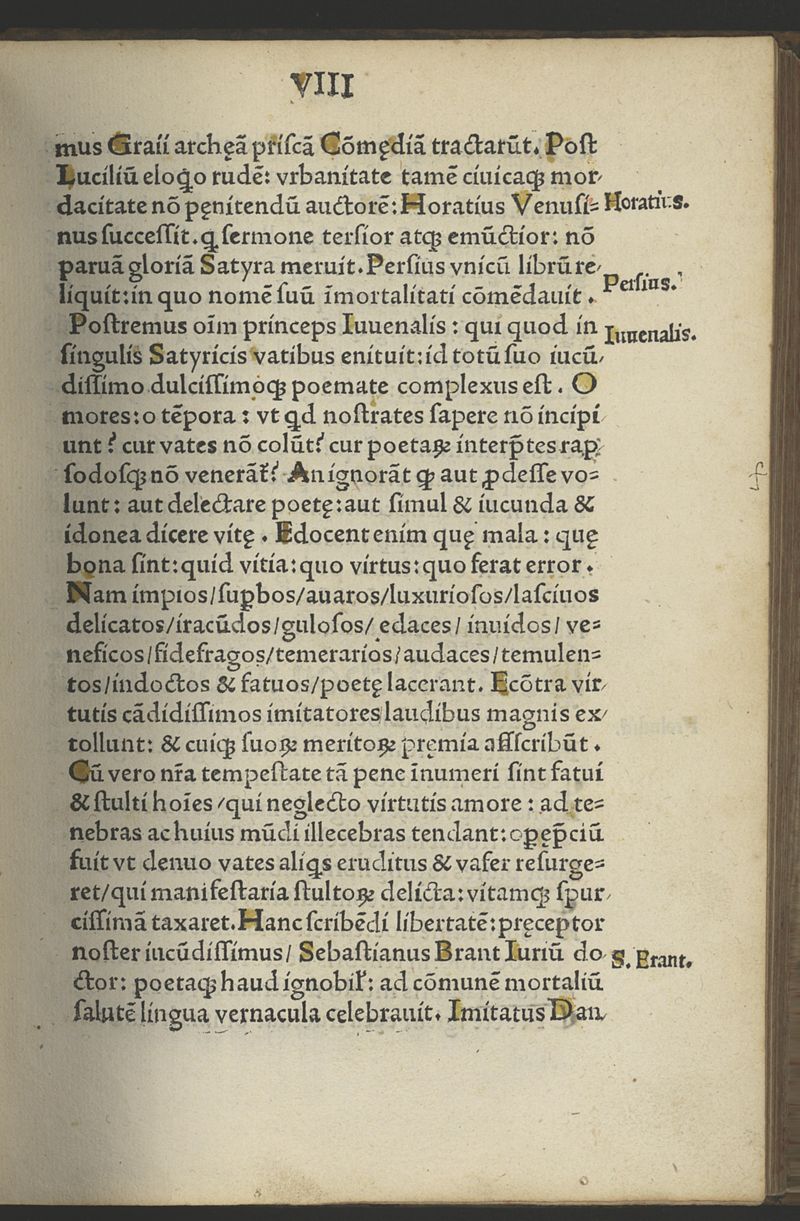 VIII
mus Graii archęã priſcã Cõmędiã tractarũt. Poſt
Luciliũ eloꝗo rudẽ: vrbanitate tamẽ ciuicaqꝫ mor⸝
dacitate nõ pęnitendũ auctorẽ: Horatius Venuſi⸗
Horatius.
nus ſucceſſit. ꝗ ſermone terſior atqꝫ emũctior: nõ
paruã gloriã Satyra meruit. Perſius vnicũ librũ re⸝
Perſius.
liquit: in quo nomẽ ſuũ ĩmortalitati cõmẽdauit.
Poſtremus oĩm princeps Iuuenalis: qui quod in
Iuuenalis.
ſingulis Satyricis vatibus enituit: id totũ ſuo iucũ⸝
diſſimo dulciſſimoqꝫ poemate complexus eſt. O
mores: o tẽpora: vt ꝗd noſtrates ſapere nõ incipi
unt? cur vates nõ colũt? cur poetaꝝ interp̃tes rap⸝
ſodoſqꝫ nõ venerãt̃? An ignorãt ꝙ aut ꝓdeſſe vo⸗
lunt: aut delectare poetę: aut ſimul & iucunda &
idonea dicere vitę. Edocent enim quę mala: quę
bona ſint: quid vitia: quo virtus: quo ferat error.
Nam impios/ſuꝑbos/auaros/luxurioſos/laſciuos
delicatos/iracũdos/guloſos/ edaces/ inuidos/ ve⸗
neficos/fidefragos/temerarios/audaces/temulen⸗
tos/indoctos & fatuos/poetę lacerant. Ecõtra vir⸝
tutis cãdidiſſimos imitatores laudibus magnis ex⸝
tollunt: & cuiqꝫ ſuoꝝ meritoꝝ pręmia aſſcribũt.
Cũ vero nr̃a tempeſtate tã pene ĩnumeri ſint fatui
& ſtulti hoĩes/qui neglecto virtutis amore: ad te⸗
nebras ac huius mũdi illecebras tendant: oꝑęp̃ciũ
fuit vt denuo vates aliꝗs eruditus & vafer reſurge⸗
ret/qui manifeſtaria ſtultoꝝ delicta: vitamqꝫ ſpur⸝
ciſſimã taxaret. Hanc ſcribẽdi libertatẽ: pręceptor
noſter iucũdiſſimus/ Sebaſtianus Brant Iuriũ do
S. Brant.
ctor: poetaqꝫ haud ignobil̃: ad cõmunẽ mortaliũ
ſalutẽ lingua vernacula celebrauit. Imitatus Dan⸝